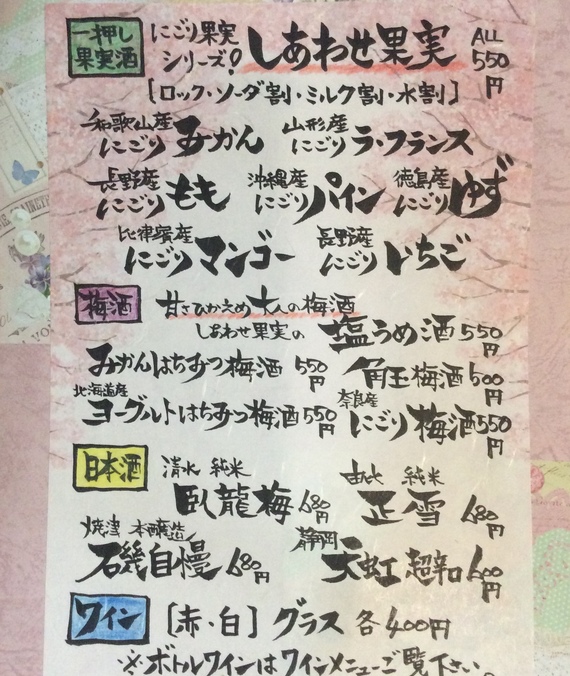 一押し果実酒 にごり果実シリーズ! しあわせ果実 ALL 550円
[ロック・ソーダ割・ミルク割・水割]
和歌山産 にごり みかん 山形産 にごり ラ・フランス
長野産 にごり もも 沖縄産 にごり パイン 徳島産 にごり ゆず
比律賓産 にごり マンゴー 長野産 にごり いちご
梅酒 甘さひかえめ大人の梅酒
しあわせ果実の 塩うめ酒 550円
みかんはちみつ梅酒 550円 角玉梅酒 500円
北海道産 ヨーグルトはちみつ梅酒 550円 奈良産 にごり梅酒 550円
日本酒 清水 純米 臥龍梅 680円 由比 純米 正雪 680円
焼津 本醸造 石磯自慢 680円 静岡 天虹 超辛口 600円
ワイン [赤・白] グラス 各400円
※ボトルワインはワインメニューご覧下さい。